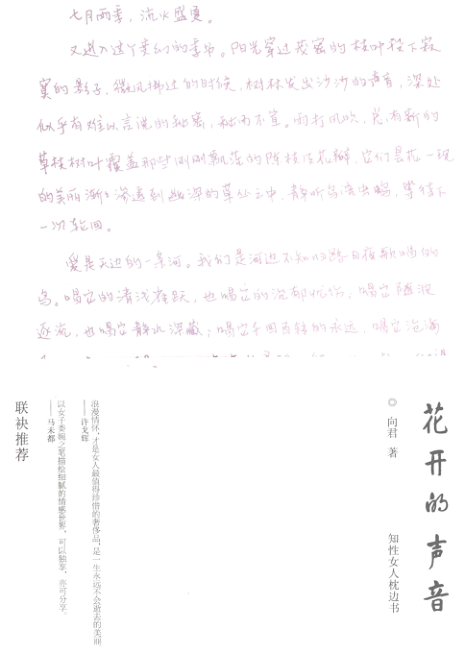 七月雨季，流火盛夏。
又进入这个梦幻的季节。阳光穿过茂密的枝叶投下寂
寞的影子，微风拂过的时候，树林发出沙沙的声音，深处
似乎有难以言说的秘密，秘而不宣。雨打风吹，总有新的
草枝树叶覆盖那些刚刚飘落的陈枝洁花瓣，它们昙花一现
的美丽渐渐渗透到幽深的草丛之中，静听鸟语虫鸣，等待下
一次轮回。
爱是天边的一条河。我们是河边不知归路日夜歌唱的
鸟。唱它的清浅雀跃，也唱它的沉郁忧伤；唱它随波
逐流，也唱它静水深藏；唱它千回百转的永远，唱它沧海
花开的声音
◎ 向君 著
知性女人枕边书
浪漫情怀，才是女人最值得珍惜的奢侈品，是一生永远不会逝去的美丽。
——许戈辉
以女子委婉之笔描绘细腻的情感世界，可以独享，亦可分享。
——马未都
联袂推荐